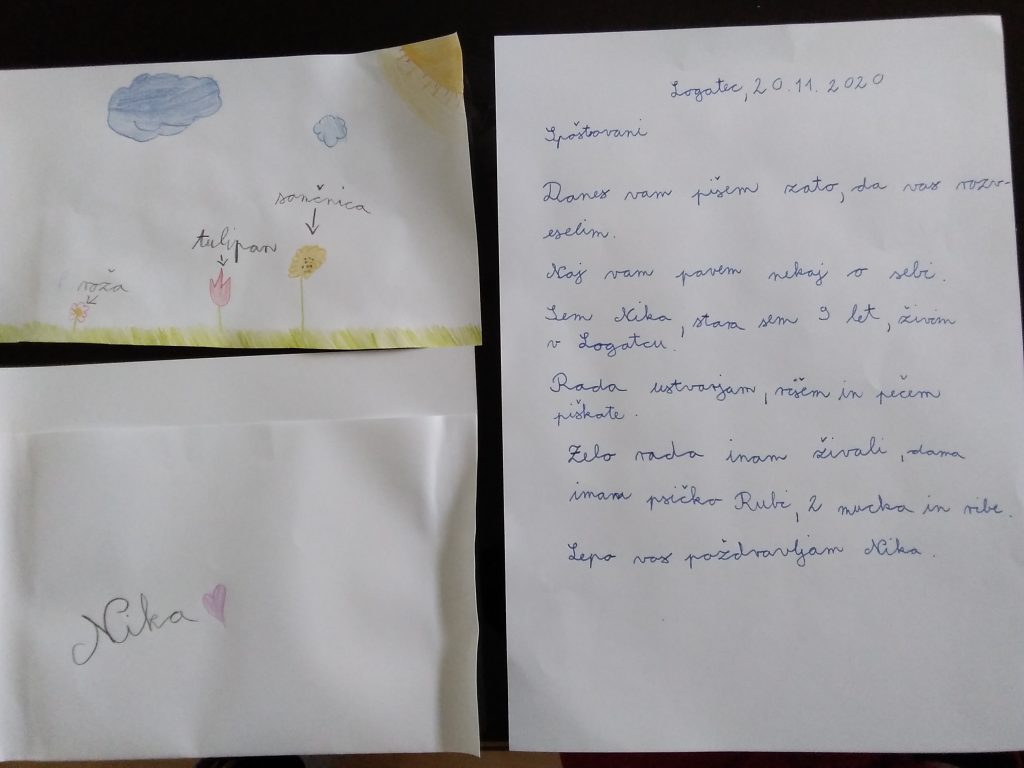 sončnica
tulipan
roža
Nika
Logatec, 20.11.2020
Spoštovani
Danes vam pišem zato, da vas razv-
eselim.
Naj vam povem nekaj o sebi.
Sem Nika, stara sem 9 let, živim
v Logatcu.
Rada ustvarjam, rišem in pečem
piškate.
Zelo rada imam živali, dama
imam psičko Rubi, 2 mucka in ribe.
Lepo vas pozdravljam Nika.